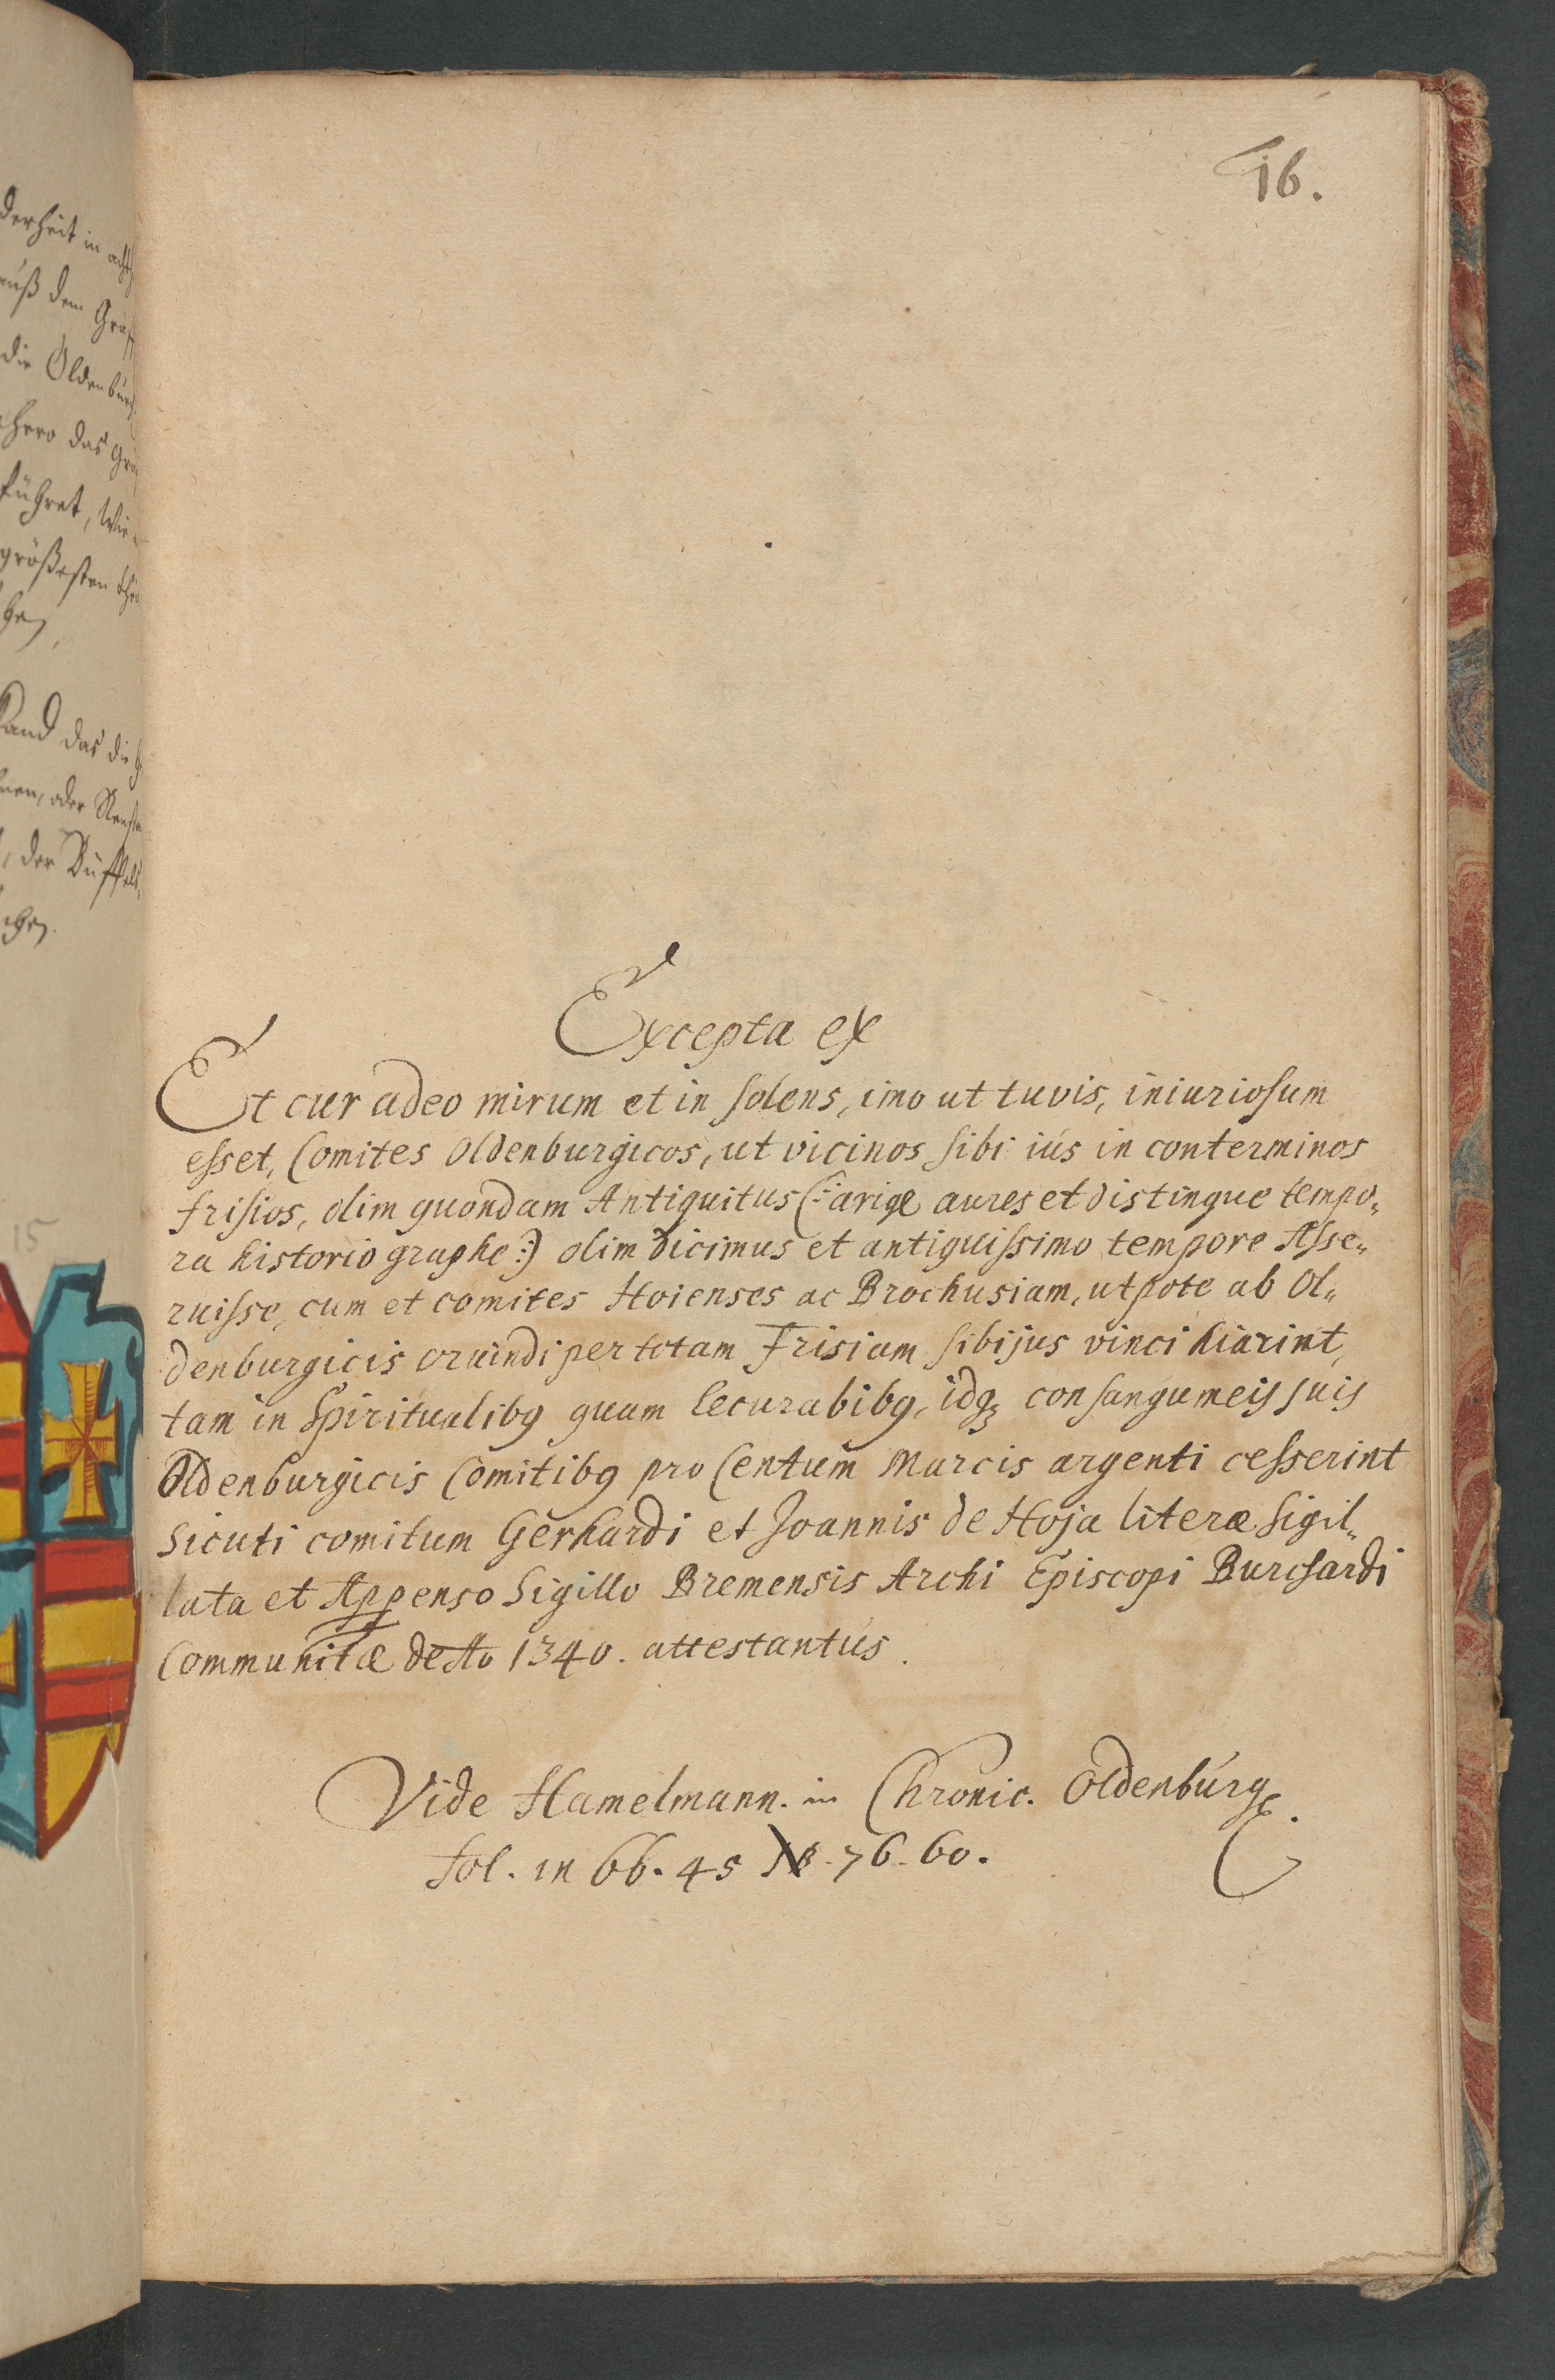 derheit in
auß dem
die Oldenburg
hero das
führet, wie
größesten
Land das die
oder
der Büffels
15
16.
Excepta ex
Et cur adeo mirum et in solens, imo ut tuvis, iniuriosum
esset, Comites Oldenburgicos, ut vicinos sibi iús in conterminos
frisios, olim quondam Antiquitus (: arige aures et distingue tempo„
ra historio graphe :) olim dicimus et antiquissimo tempore Asse„
ruisse, cum et comites Hoienses ac Brochusiam, utpote ab Ol„
denburgicis oruindi per totam Frisiam sibi jus vinci hiarint,
tam in Spiritualibꝰ quam Securabibꝰ, idqꝫ consangumeis suis
Oldenburgicis Comitibꝰ pro Centum Marcis argenti cesserint
Sicuti comitum Gerhardi et Joannis de Hoja literæ Sigil„
lata et Appenso Sigillo Bremensis Archi Episcopi Burchardi
Communitæ de Ao 1340. attestantús.
Vide Hamelmann. in Chronic. Oldenbúrg.
fol. in 66. 45 NB. 76. 60.